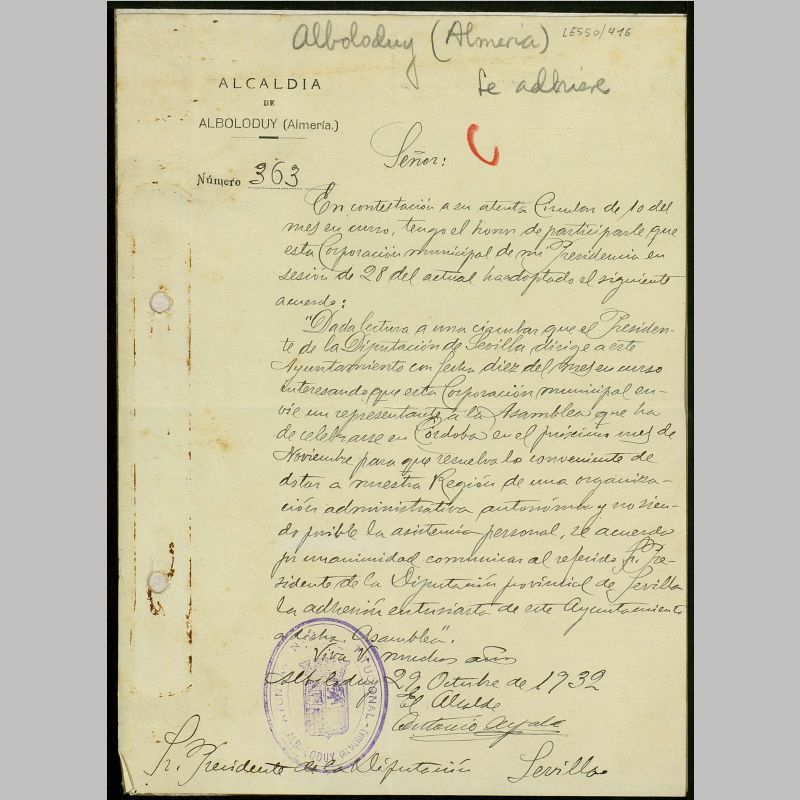 Alboloduy (Almería)
LE550/416
Se adhiere
ALCALDIA
DE
ALBOLODUY (Almería.)
Señor:
Número 363
En contestación a su atenta Circular de 10 del
mes en curso, tengo el honor de participarle que
esta Corporación municipal de mi Presidencia en
sesión de 28 del actual ha adoptado el siguiente
acuerdo:
"Dada lectura a una circular que el Presiden-
te de la Diputación de Sevilla dirige a este
Ayuntamiento con fecha diez del mes en curso
interesando que esta Corporación municipal en-
vie un representante a la Asamblea que ha
de celebrarse en Córdoba en el próximo mes de
Noviembre para que resuelva lo conveniente de
dotar a nuestra Región de una organiza-
ción administrativa autonóma y no sien-
do posible la asistencia personal, se acuerda
por unanimidad comunicar al referido Sr. Pre-
sidente de la Diputación provincial de Sevilla
la adhesión entusiasta de este Ayuntamiento
a dicha Asamblea".
Viva V. muchos años
Alboloduy 29 Octubre de 1932
El Alcalde
Antonio
ALBOLODUY (ALMERIA)
Sr. Presidente de la Diputación Sevilla